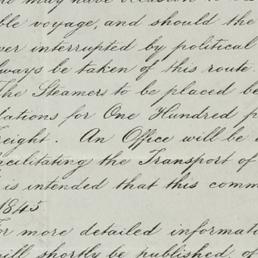 he may have occasion to
ble voyage, and should the
ver interrupted by political
lways be taken of this route
the Steamers to be placed be
lations for One Hundred p
reight. An Office will be
acilitating the Transport of
is intended that this comm
1845
or more detailed informati
will shortly be published of